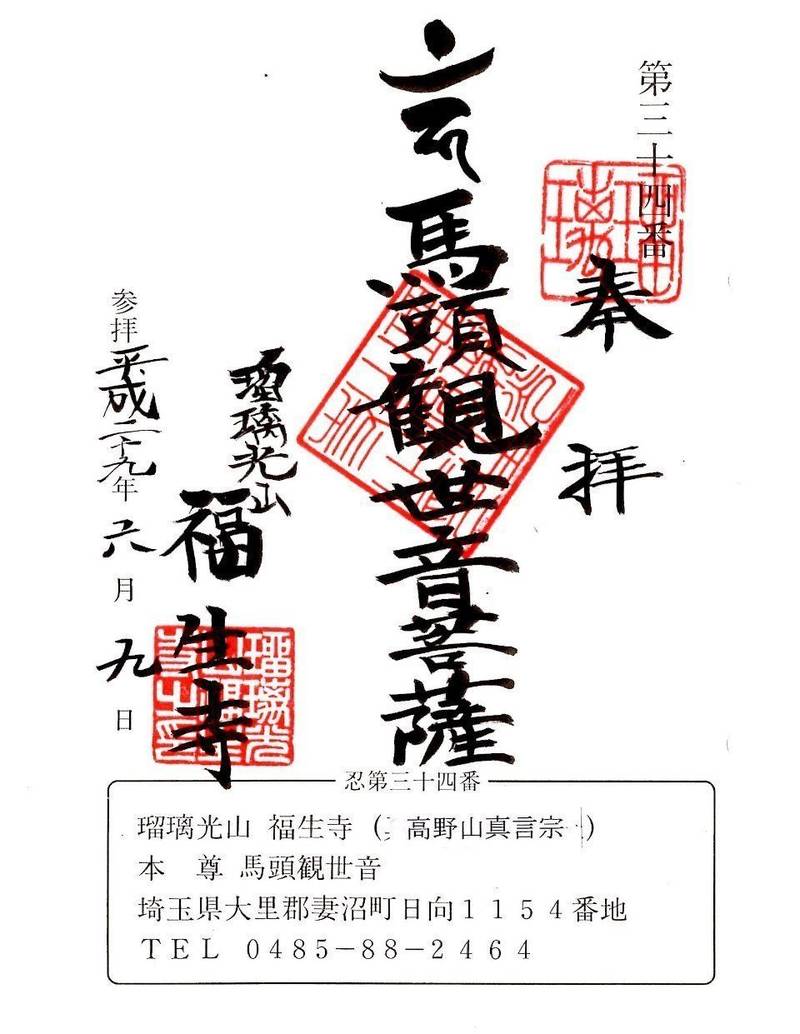 第三十四番
奉拝
馬頭観世音菩薩
瑠璃光山
福生寺
参拝平成二十九年六月九日
忍第三十四番
瑠璃光山 福生寺 ( 高野山真言宗 )
本 尊 馬頭観世音
埼玉県大里郡妻沼町日向1154番地
TEL 0485-88-2464